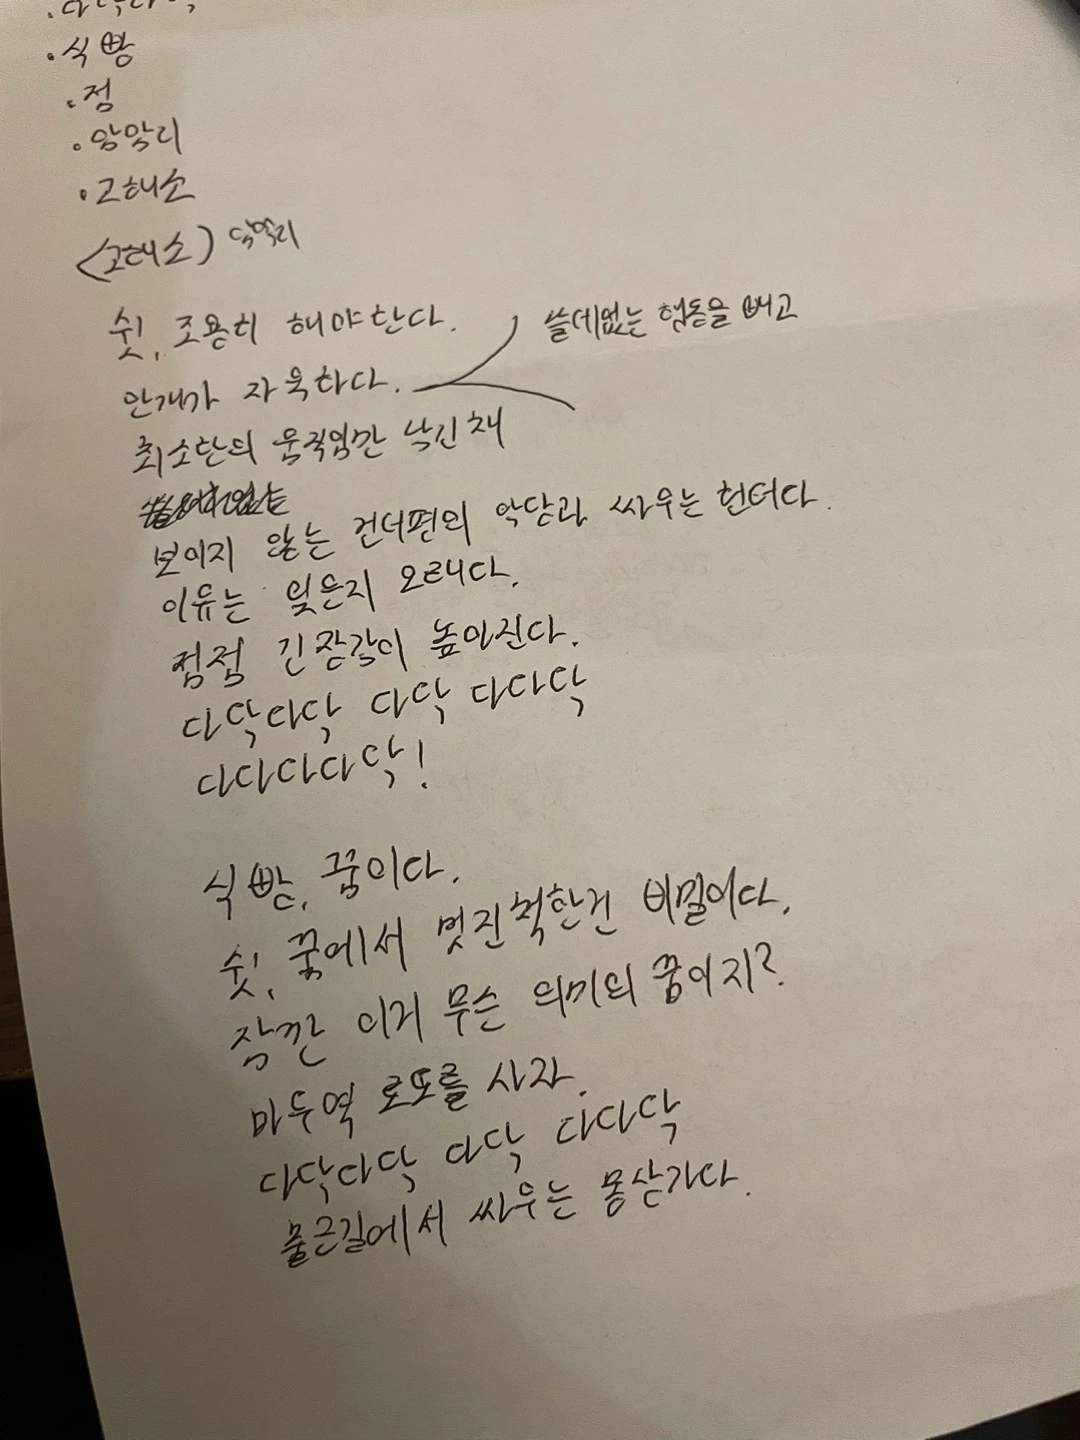 ·식빵
·점
·앙앙리
·고해소
<고해소>
쉿, 조용히 해야한다.
쓸데없는 행동을 빼고
안개가 자욱하다.
최소한의 움직임만 남긴채
보이지 않는 건더편의 악당과 싸우는 헌터다.
이유는 잊은지 오래다.
점점 긴장감이 높아진다.
다닥다닥 다닥 다다닥
다다다다닥!
식빵, 꿈이다.
쉿, 꿈에서 멋진척한건 비밀이다.
잠깐 이거 무슨 의미의 꿈이지?
마두역 로또를 사자.
다닥다닥 다닥 다다닥
출근길에서 싸우는 몽상가다.